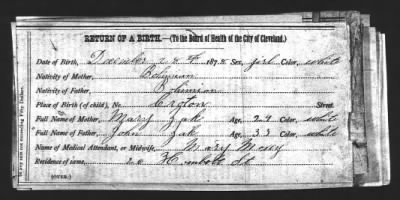 RETURN OF A BIRTH.—(To the Board of Health of the City of Cleveland.)
Date of Birth, December 187 Sex, girl Color, white
Nativity of Mother, Bohemian
Nativity of Father, Bohemian
Place of Birth (of child), No. Croton Street.
Full Name of Mother, Mary Zak Age, 29 Color, white
Full Name of Father, John Zak Age, 33 Color, white
Name of Medical Attendant, or Midwife, Mary
Residence of same, 20 St
(OVER.)